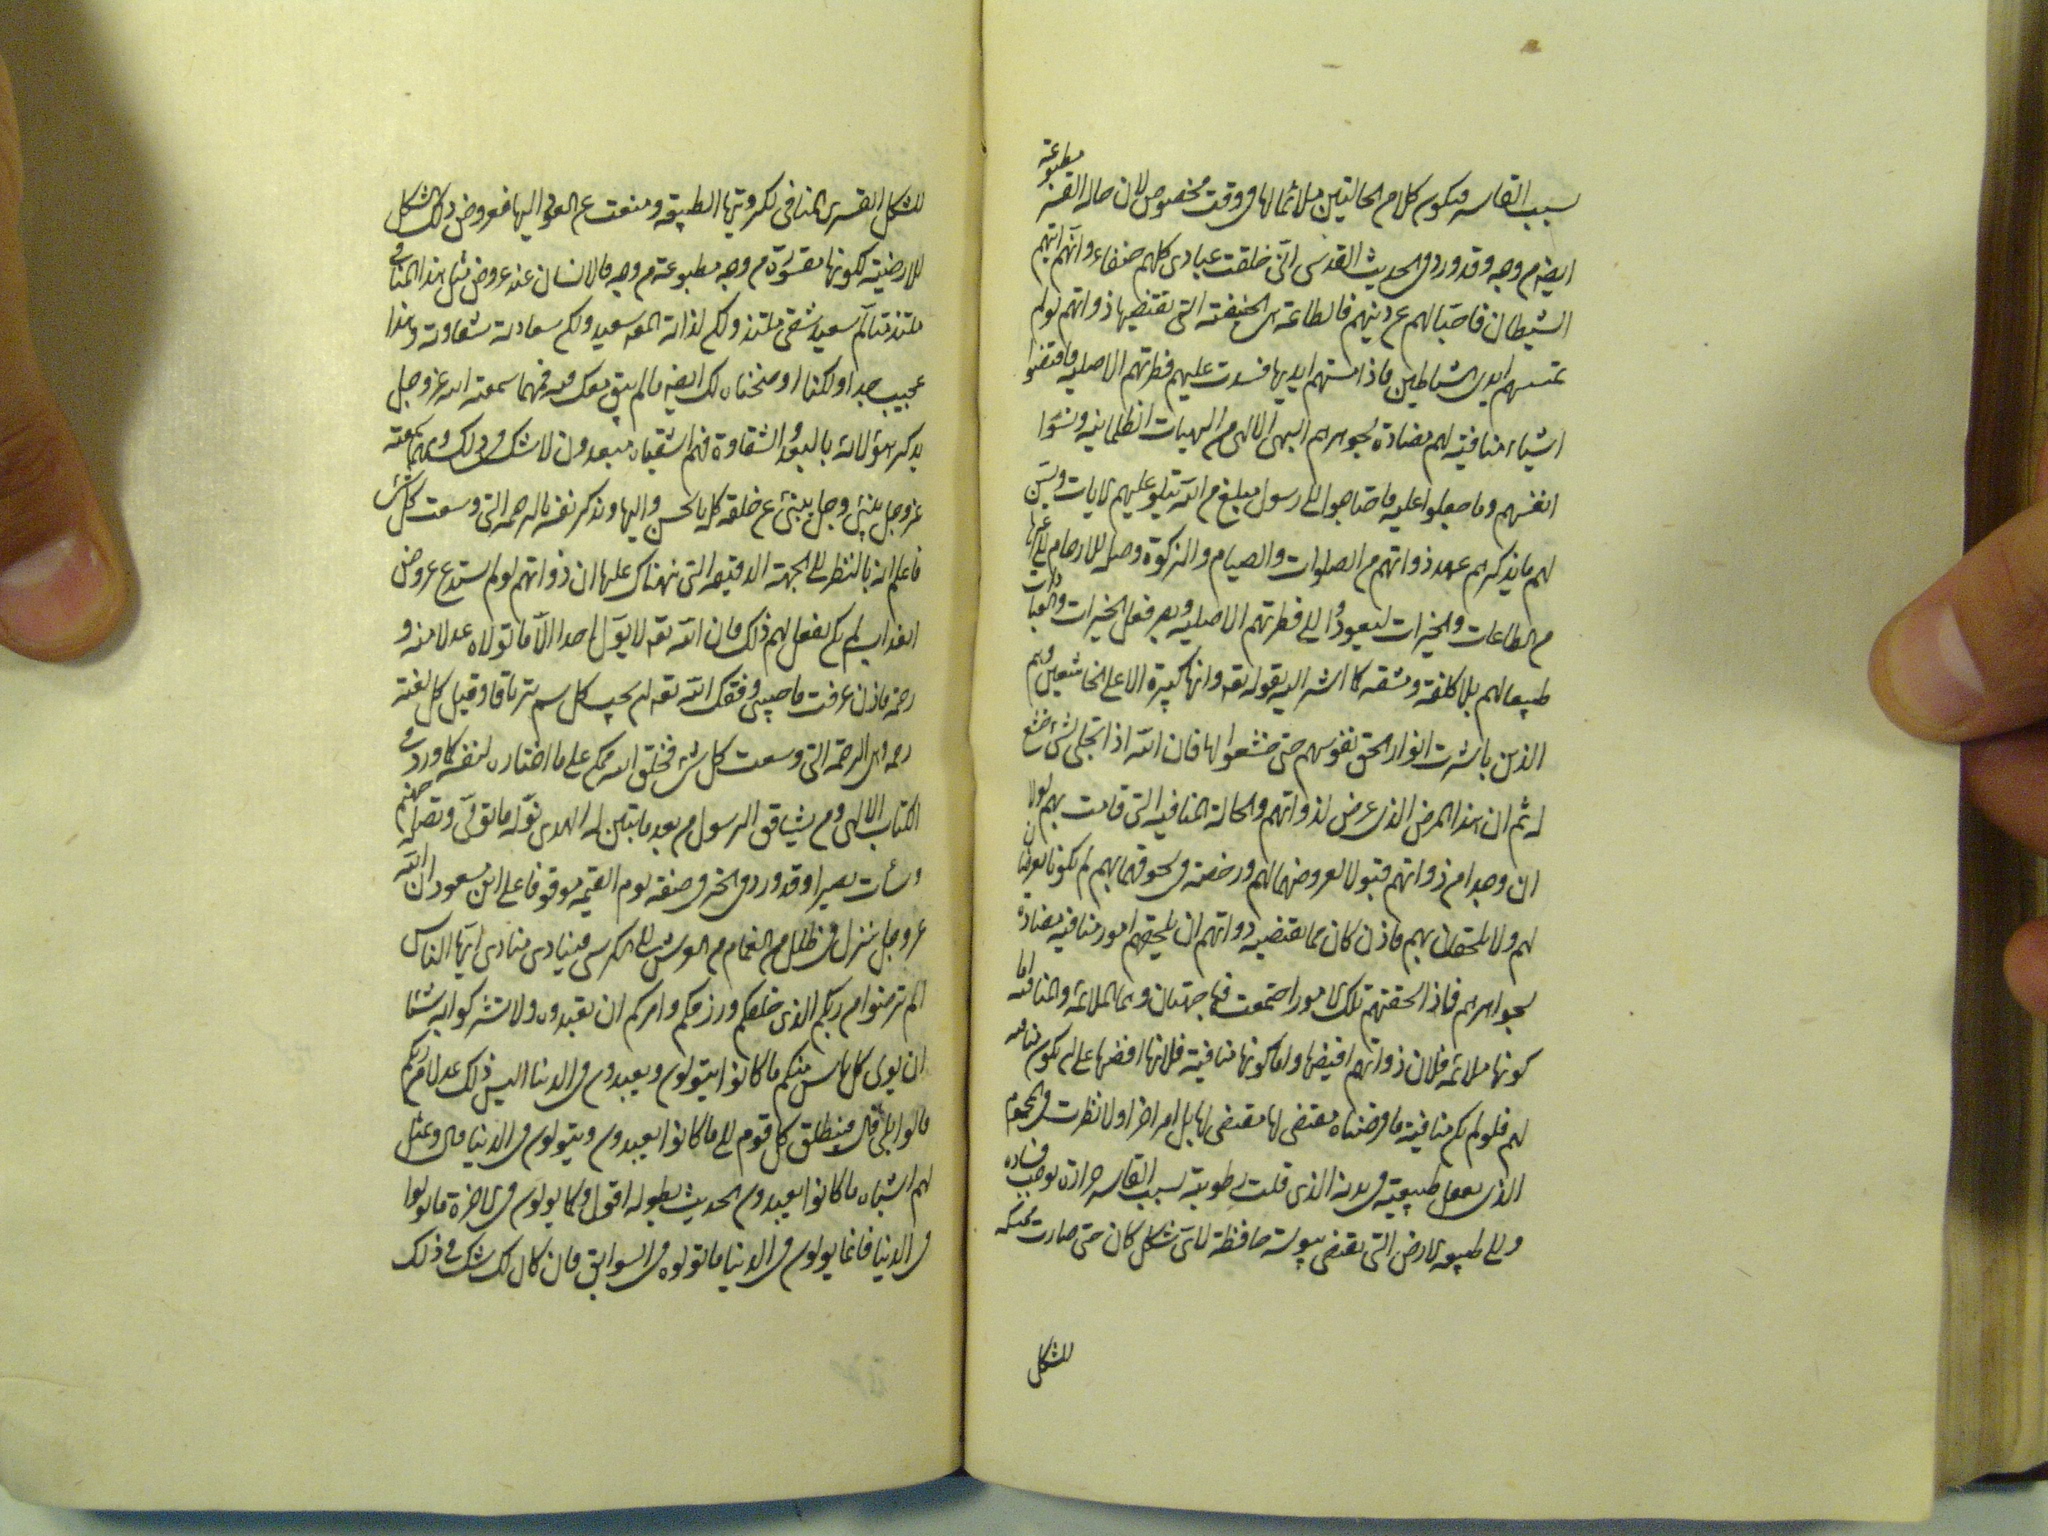 مطبوعة
بسبب القاسر فيكون كلام الحالتين ملائما لها في وقت مخصوص لان حالة القسر
ايضا من وجه وقد ورد في الحديث القدسي اني خلقت عبادي كلهم حنفاء وانهم اتيهم
الشيطان فاحتالهم عن دينهم فالطاعة هي الحنيفية التي تقتضيها ذواتهم لو لم
تمسسهم ايدي الشياطين فاذا مستهم ايديها فسدت عليهم فطرتهم الاصلية فاقتضوا
اشياء منافية لهم مضادة لجوهرهم البهي الالهي من الهيات الظلمانية ونسوا
انفسهم وما جبلوا عليه فاحتاجوا الى رسول مبلغ من الله يتلو عليهم الايات ويبين
لهم ما يذكرهم عهد ذواتهم من الصلوات والصيام والزكوة وصلة الارحام الى غيرها
من الطاعات والخيرات ليعودوا الى فطرتهم الاصلية ويصير فعل الخيرات والعبادات
طبيعا لهم بلا كلفة ومشقة كما اشير اليه بقوله تعه وانها كبيرة الا على الخاشعين وهم
الذين باشرت انوار الحق نفوسهم حتى خشعوا لها فان الله اذا تجلى لشئ خشع
له ثم ان هذا المرض الذي عرض لذواتهم والحالة المنافية التي قامت بهم لولا
ان وجدا من ذواتهم قبولا لعروضهما لهم ورخصة في لحوقهما بهم لم يكونا يعرضان
لهم ولا يلحقان بهم فاذن كان مما يقتضيه ذواتهم ان يلحقهم امور منافية مضادة
لجواهرهم فاذا لحقتهم تلك الامور اجتمعت فيها جهتان وهما الملائمة والمنافية اما
كونها ملائمة فلان ذواتهم اقتضتها واما كونها منافية فلانها اقتضتها على ان يكون منافية
لهم فلو لم يكن منافية ما فرضناه مقتضى لها مقتضى لها بل امر اخر اولا نظرت في المحموم
الذي يعمل طبيعته في بدنه الذي قلت رطوبته بسبب القاسر حرارة توجب فساده
والى طبيعة الارض التي يقتضي يبوسة حافظة لاي شكل كان حتى صارت ممسكة
للشكل
للشكل القسري المنافي لكرويتها الطبيعية ومنعت عن العود اليها فعروض ذلك الشكل
للارضية لكونها مقسورة من وجه مطبوعة من وجه فالانسان عند عروض مثل هذا المنافي
ملتذ متألم سعيد شقي ملتذ ولكن لذاته المه سعيد ولكن سعادته شقاوته وهذا
عجيب جدا ولكنا اوضحناه لك ايضا ما لم يبق معك فيه فمهما سمعت الله عز وجل
يذكر هؤلاء بالبعد والشقاوة فهم اشقياء مبعدون لا شك في ذلك ومهما سمعته
عز وجل ينبئ عن خلقه كل بالحسن والبهاء ويذكر نفسه بالرحمة التي وسعت كل شئ
فاعلم انه بالنظر الى الجهة الدقيقة التي نبهناك عليها ان ذواتهم لو لم يستدع عروض
العذاب لم يكن يفعل لهم ذلك فان الله تعه لا يولي احدا الا ما تولاه عدلا منه و
رحمة فاذن عرفت ما حببني وفقك الله تعه ان يحب كل سم ترياقا وقيل كل لعنة
رحمة وهي الرحمة التي وسعت كل شئ فخلق الله يحكم على ما اختاره لنفسه كما ورد في
الكتاب الالهي ومن يشاقق الرسول من بعد ما تبين له الهدى نوله ما تولى ونصله جهنم
وساءت مصيرا وقد ورد في الخبر في صفة يوم القيمة موقوفا على ابن مسعود ان الله
عز وجل ينزل في ظلل من الغمام من العرش الى الكرسي فينادي منادي ايها الناس
الم ترضوا من ربكم الذي خلقكم ورزقكم وامركم ان تعبدوه ولا تشركوا به شيئا
ان يولي كل ناس منكم ما كانوا يتولون ويعبدون في الدنيا اليس ذلك عدلا من ربكم
قالوا بلى قال فينطلق كل قوم الى ما كانوا يعبدون ويتولون في الدنيا قال ويمثل
لهم اشباه ما كانوا يعبدون الحديث بطوله اقول وكما يولون في الاخرة ما تولوا
في الدنيا فانما يولون في الدنيا ما تولوه في السوابق فان كان لك شك في ذلك